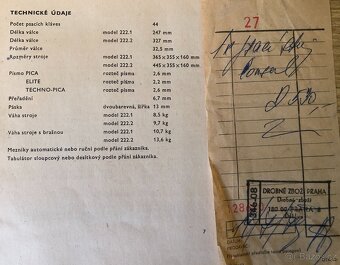 TECHNICKÉ ÚDAJE
Počet psacích kláves 44
Délka válce model 222.1 247 mm
Délka válce model 222.2 327 mm
Průměr válce 32,5 mm
Rozměry stroje model 222.1 365 x 355 x 160 mm
model 222.2 445 x 355 x 160 mm
Písmo PICA rozteč písma 2,6 mm
ELITE rozteč písma 2,2 mm
TECHNO-PICA rozteč písma 2,6 mm
Přeřadění 6,7 mm
Páska dvoubarevná, šířka 13 mm
Váha stroje model 222.1 8,5 kg
model 222.2 9,7 kg
Váha stroje s brašnou model 222.1 10,7 kg
model 222.2 13,6 kg
Mezníky automatické nebo ruční podle přání zákazníka.
Tabulátor sloupcový nebo desítkový podle přání zákazníka.
7
27
DROBNÉ ZBOŽÍ PRAHA
Drobné zboží
346-08
DATUM